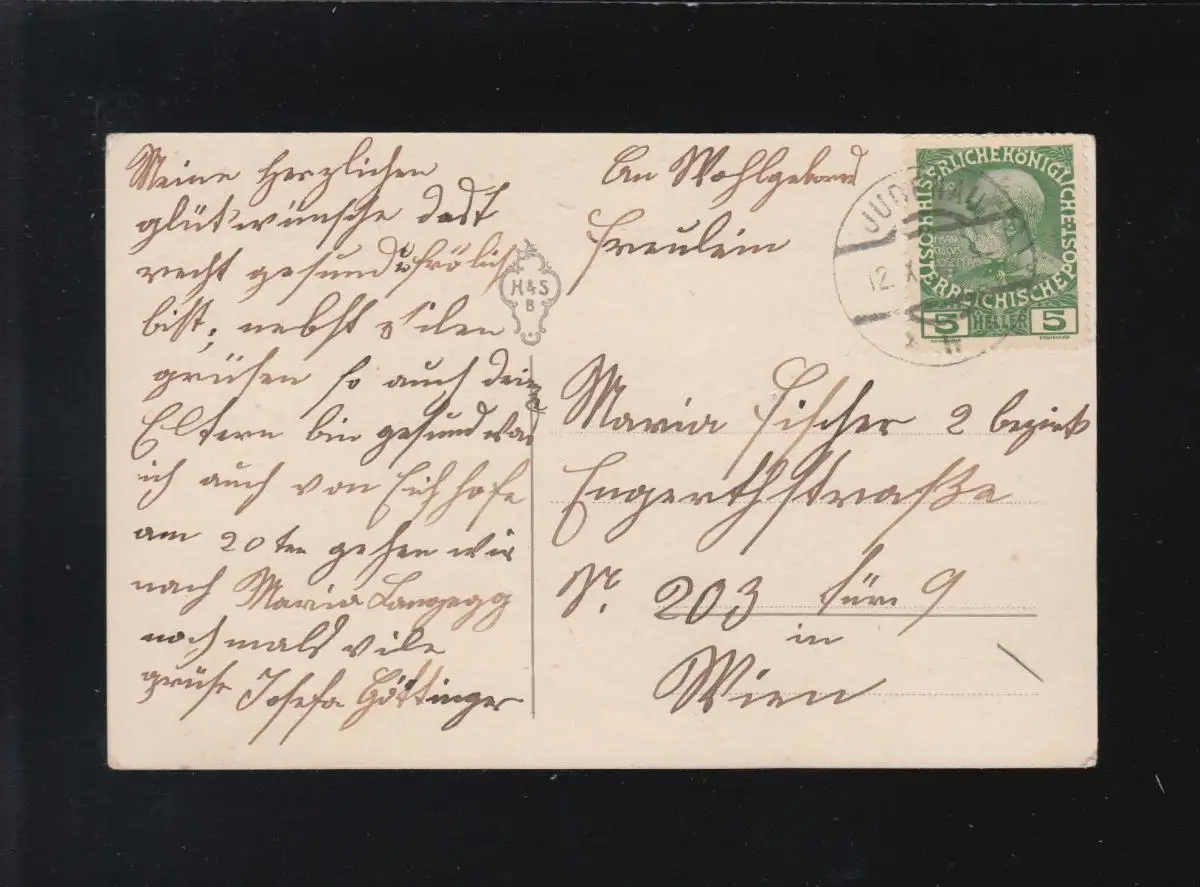 Meine Herzlichen
glükwünsche dast
recht gesund u frölich
bist, nebst vilen
grüsen so auch deine
Eltern bin gesund was
ich auch von Euch hofe
am 20ten gehen wir
nach Maria Langegg
nochmals vile
grüse Josefa Göttinger
H&S
B
An Wohlgeboren
Freulein
Maria Fischer 2 bezirk
Engerthstraße
Nr. 203 Tür 9
in
Wien
JUDENAU
12. X
KAISERLICHE KÖNIGLICHE
ÖSTERREICHISCHE POST
5 HELLER 5